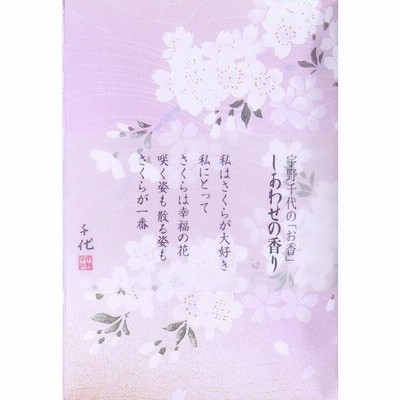 宇野千代の「お香」
しあわせの香り
私はさくらが大好き
私にとって
さくらは幸福の花
咲く姿も散る姿も
さくらが一番
千代